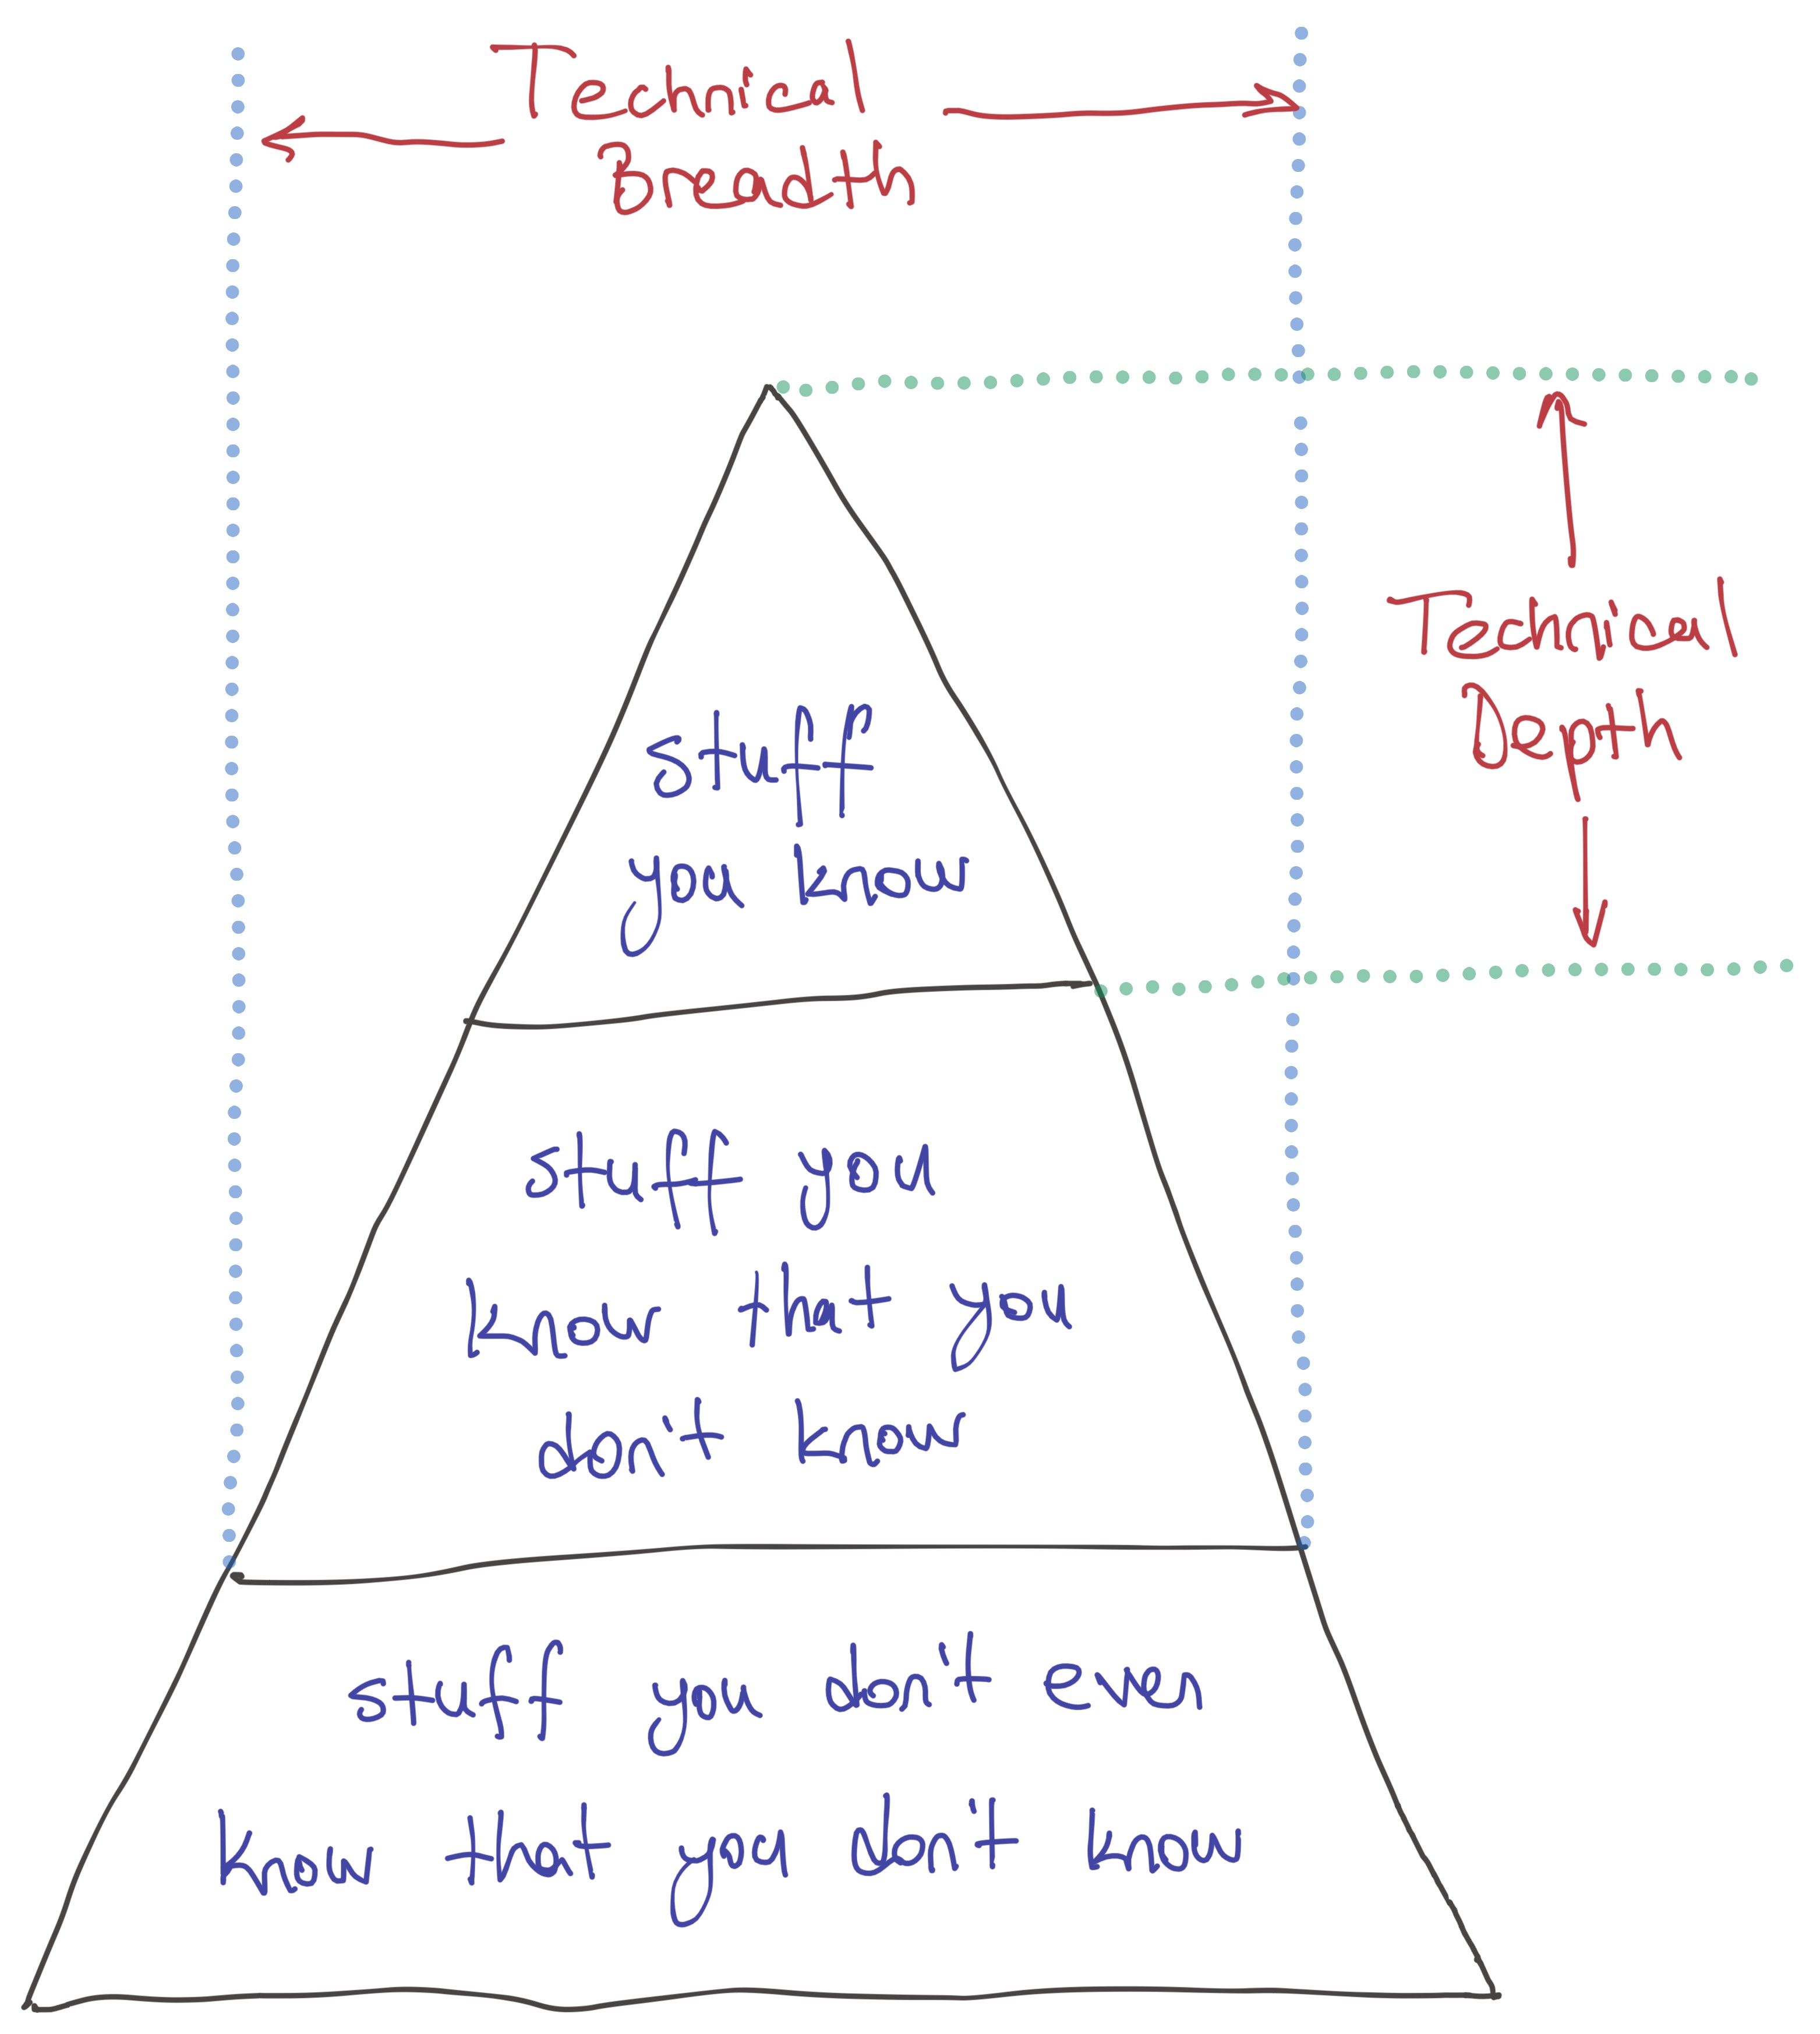 Technical
Breadth
Technical
Depth
stuff
you know
stuff you
know that you
don't know
stuff you don't even
know that you don't know